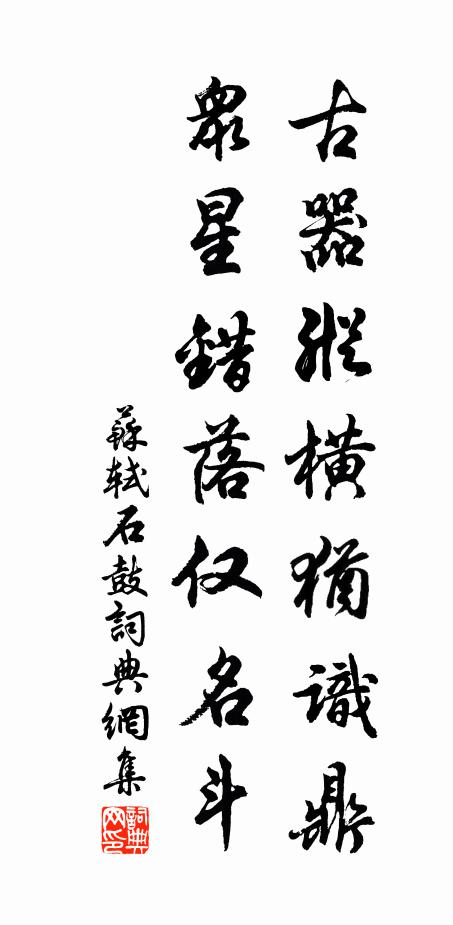 古器縱橫猶識鼎
衆星錯落仅名斗
蘇轼石鼓詞典網集
詞典网印